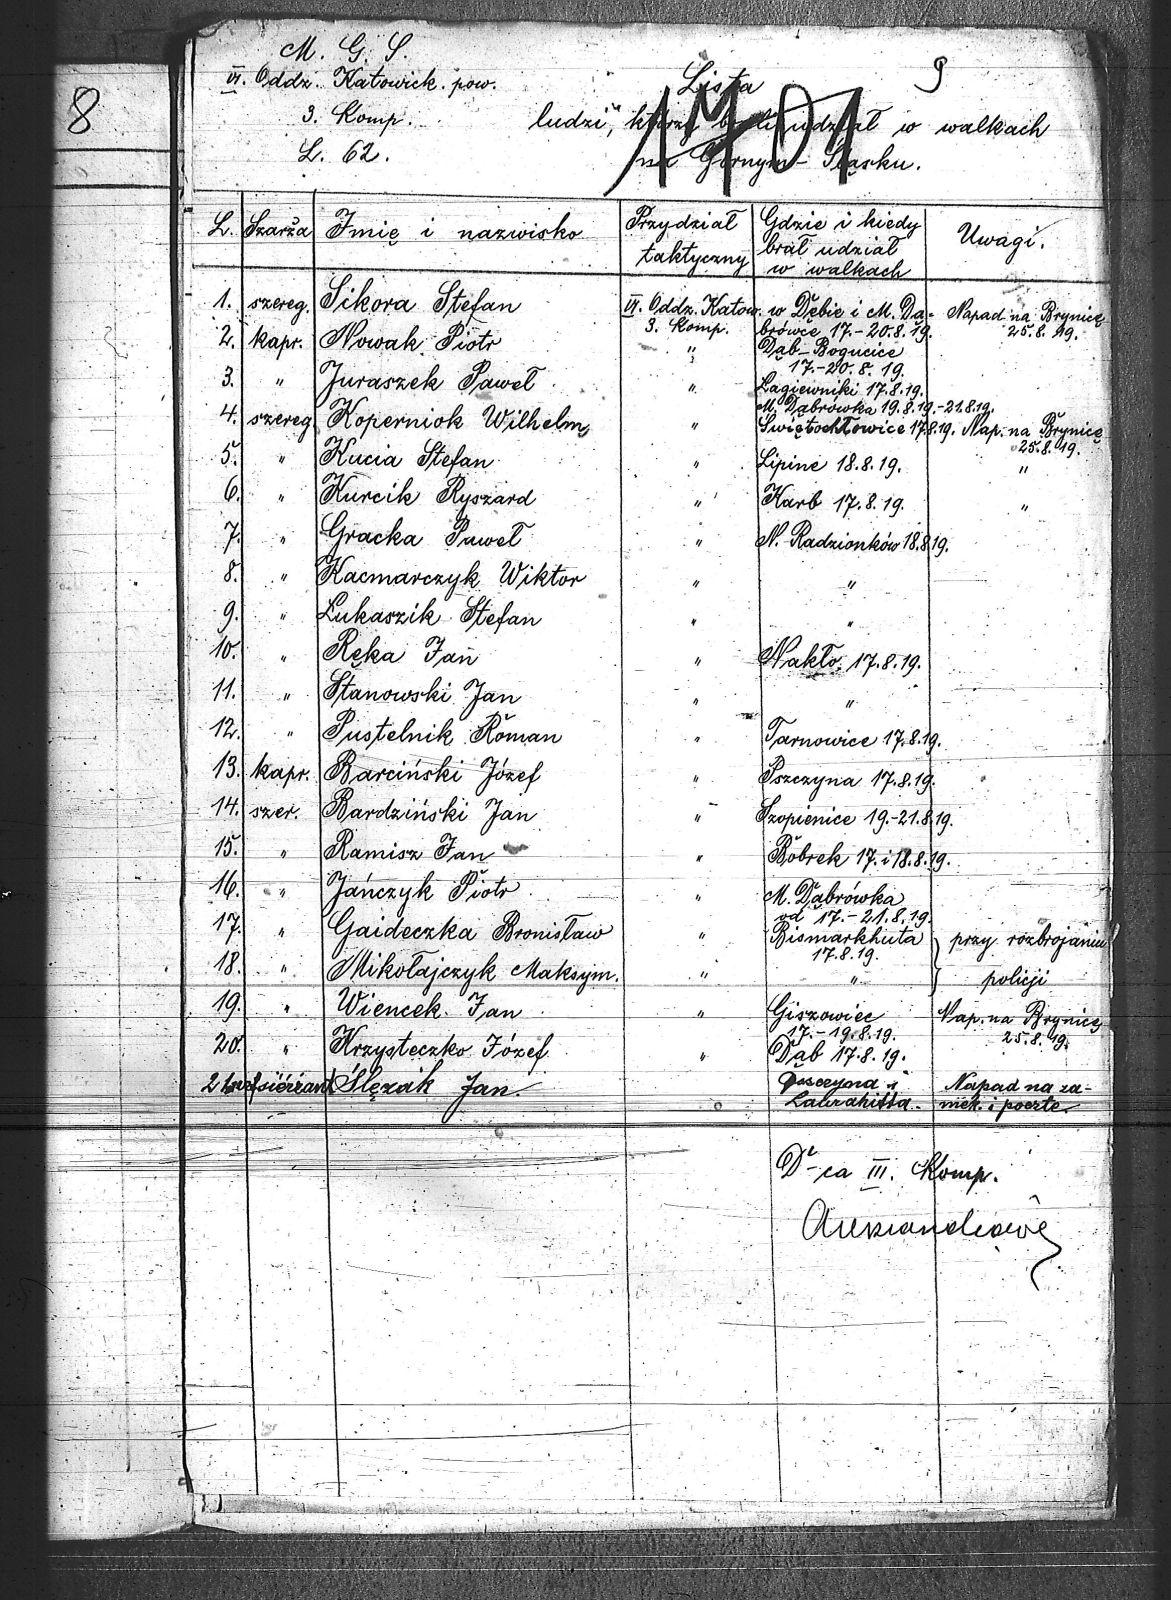 8
9
M. G. S.
VI. Oddz. Katowick. pow.
3. Komp.
L. 62.
Lista
ludzi, którzy brali udział w walkach
na Górnym-Śląsku.
1701
L. Szarża Imię i nazwisko Przydział taktyczny Gdzie i kiedy brał udział w walkach Uwagi.
1. szereg. Sikora Stefan VI. Oddz. Katow. 3. Komp. w Dębie i M. Dąbrówce 17.-20.8.19. Napad na Brynicę 25.8.19.
2. kapr. Nowak Piotr " Dąb-Bogucice 17.-20.8.19.
3. " Juraszek Paweł " Łagiewniki 17.8.19. M. Dąbrówka 19.8.19.-21.8.19.
4. szereg Koperniok Wilhelm " Świętochłowice 17.8.19. Nap. na Brynicę 25.8.19.
5. " Kucia Stefan " Lipine 18.8.19. "
6. " Kurcik Ryszard " Karb 17.8.19. "
7. " Gracka Paweł " N. Radzionków 18.8.19.
8. " Kacmarczyk Wiktor " "
9. " Lukaszik Stefan " "
10. " Ręka Jan " Nakło 17.8.19.
11. " Stanowski Jan " "
12. " Pustelnik Roman " Tarnowice 17.8.19.
13. kapr. Barciński Józef " Pszczyna 17.8.19.
14. szer. Bardziński Jan " Szopienice 19.-21.8.19.
15. " Ramisz Jan " Bobrek 17. i 18.8.19.
16. " Jańczyk Piotr " M. Dąbrówka od 17.-21.8.19.
17. " Gaideczka Bronisław " Bismarkhuta 17.8.19. przy rozbrojaniu
18. " Mikołajczyk Maksym. " " policji
19. " Wiencek Jan " Giszowiec 17.-19.8.19. Nap. na Brynicę 25.8.19.
20. " Krzysteczko Józef " Dąb 17.8.19.
21. Ślęzak Jan. Pszczyna i Napad na zamek i pocztę
D-ca III. Komp.